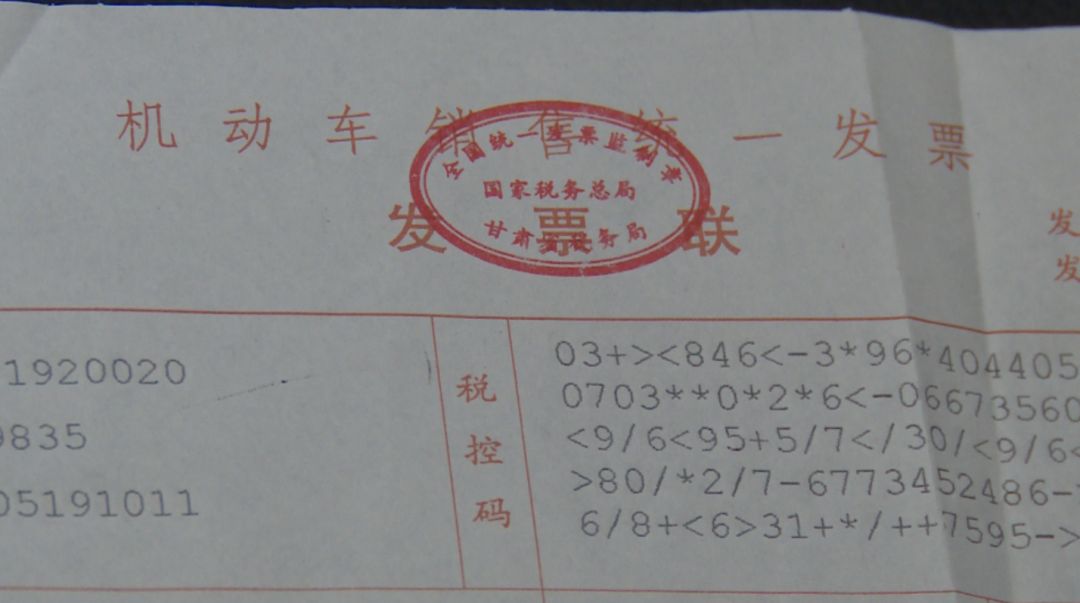 机动车销售统一发票
全国统一发票监制章
国家税务总局
甘肃省税务局
发票联
发
发
1920020
9835
05191011
税控码
03+><846<-3*96*404405
0703**0*2*6<-06673560
<9/6<95+5/7</30/<9/6<
>80/*2/7-6773452486-
6/8+<6>31+*/++7595->